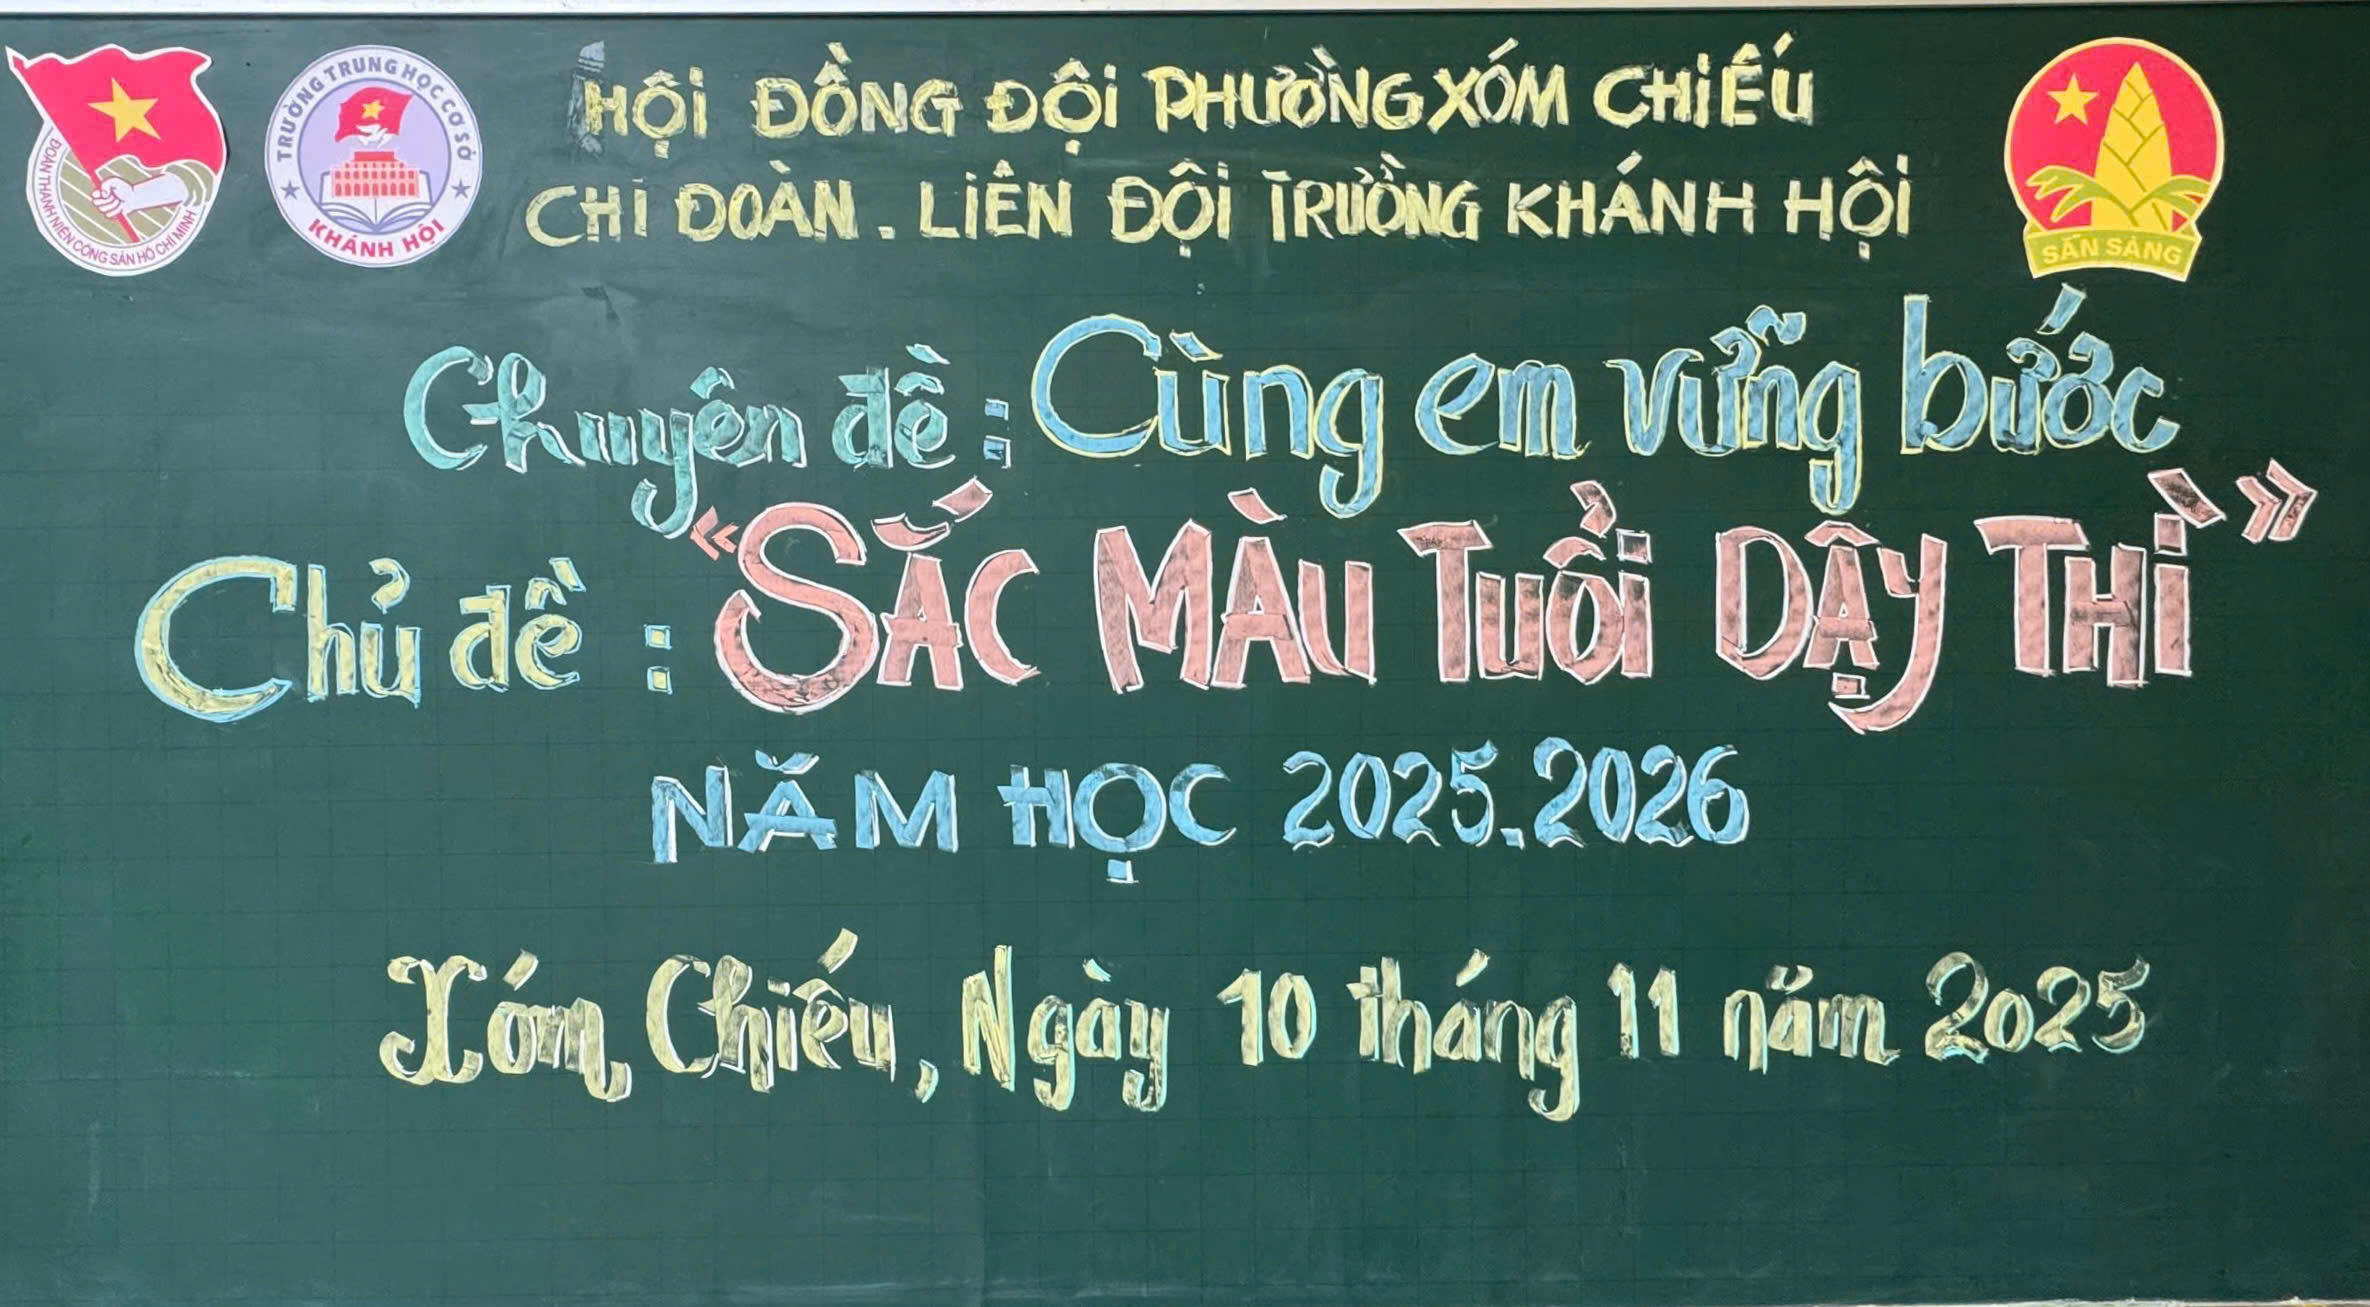 ĐOÀN THANH NIÊN CỘNG SẢN HỒ CHÍ MINH
TRƯỜNG TRUNG HỌC CƠ SỞ
KHÁNH HỘI
SẴN SÀNG
HỘI ĐỒNG ĐỘI PHƯỜNG XÓM CHIẾU
CHI ĐOÀN . LIÊN ĐỘI TRƯỜNG KHÁNH HỘI
Chuyên đề : Cùng em vững bước
Chủ đề : "SẮC MÀU TUỔI DẬY THÌ"
NĂM HỌC 2025.2026
Xóm Chiếu, Ngày 10 tháng 11 năm 2025